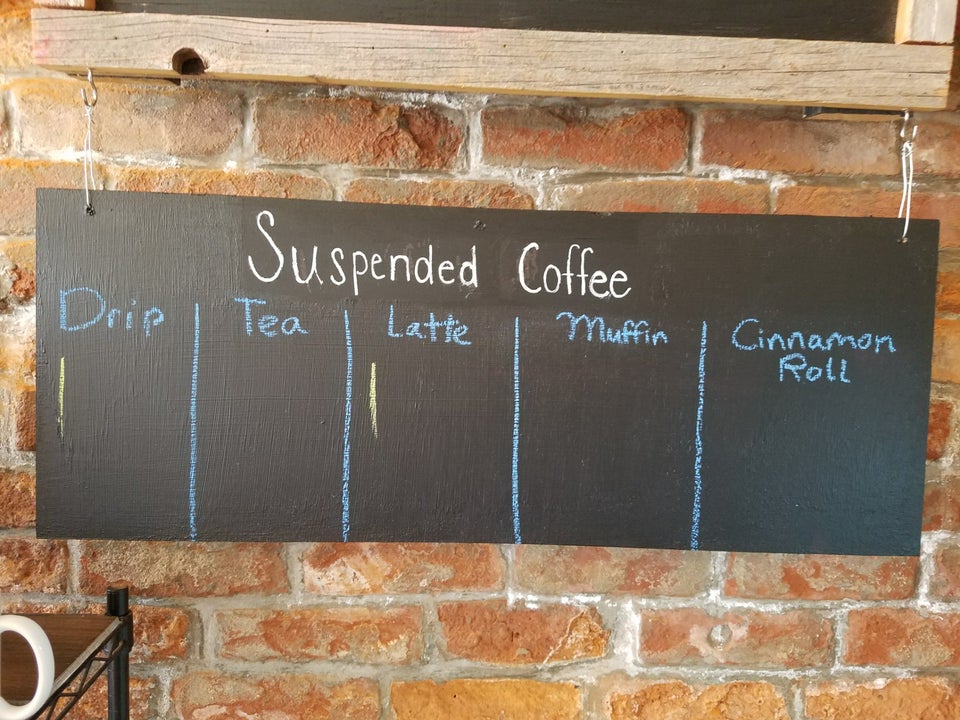 Suspended Coffee
Drip Tea Latte Muffin Cinnamon
Roll